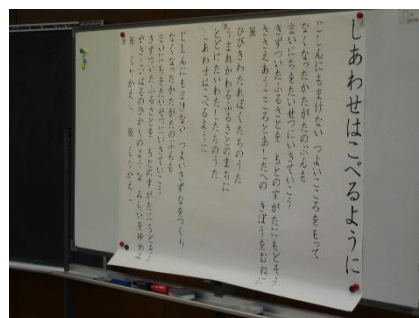 しあわせはこべるように
じしんにもまけない つよいこころをもって
なくなったかたがたのぶんも
まいにちを たいせつに いきてゆこう
きずついたふるさとを もとのすがたにもどそう
ささえあうこころと あしたへの きぼうをむねに
※
ひびきわたれ ぼくたちのうた
うまれかわる ふるさとのまちに
とどけたい わたしたちのうた
しあわせはこべるように
じしんにもまけない つよいきずなをつくり
なくなったかたがたのぶんも
まいにちを たいせつに いきてゆこう
きずついたふるさとを もとのすがたにもどそう
やさしいはるのひかりのような みらいを
※ くりかえし ※ くりかえし